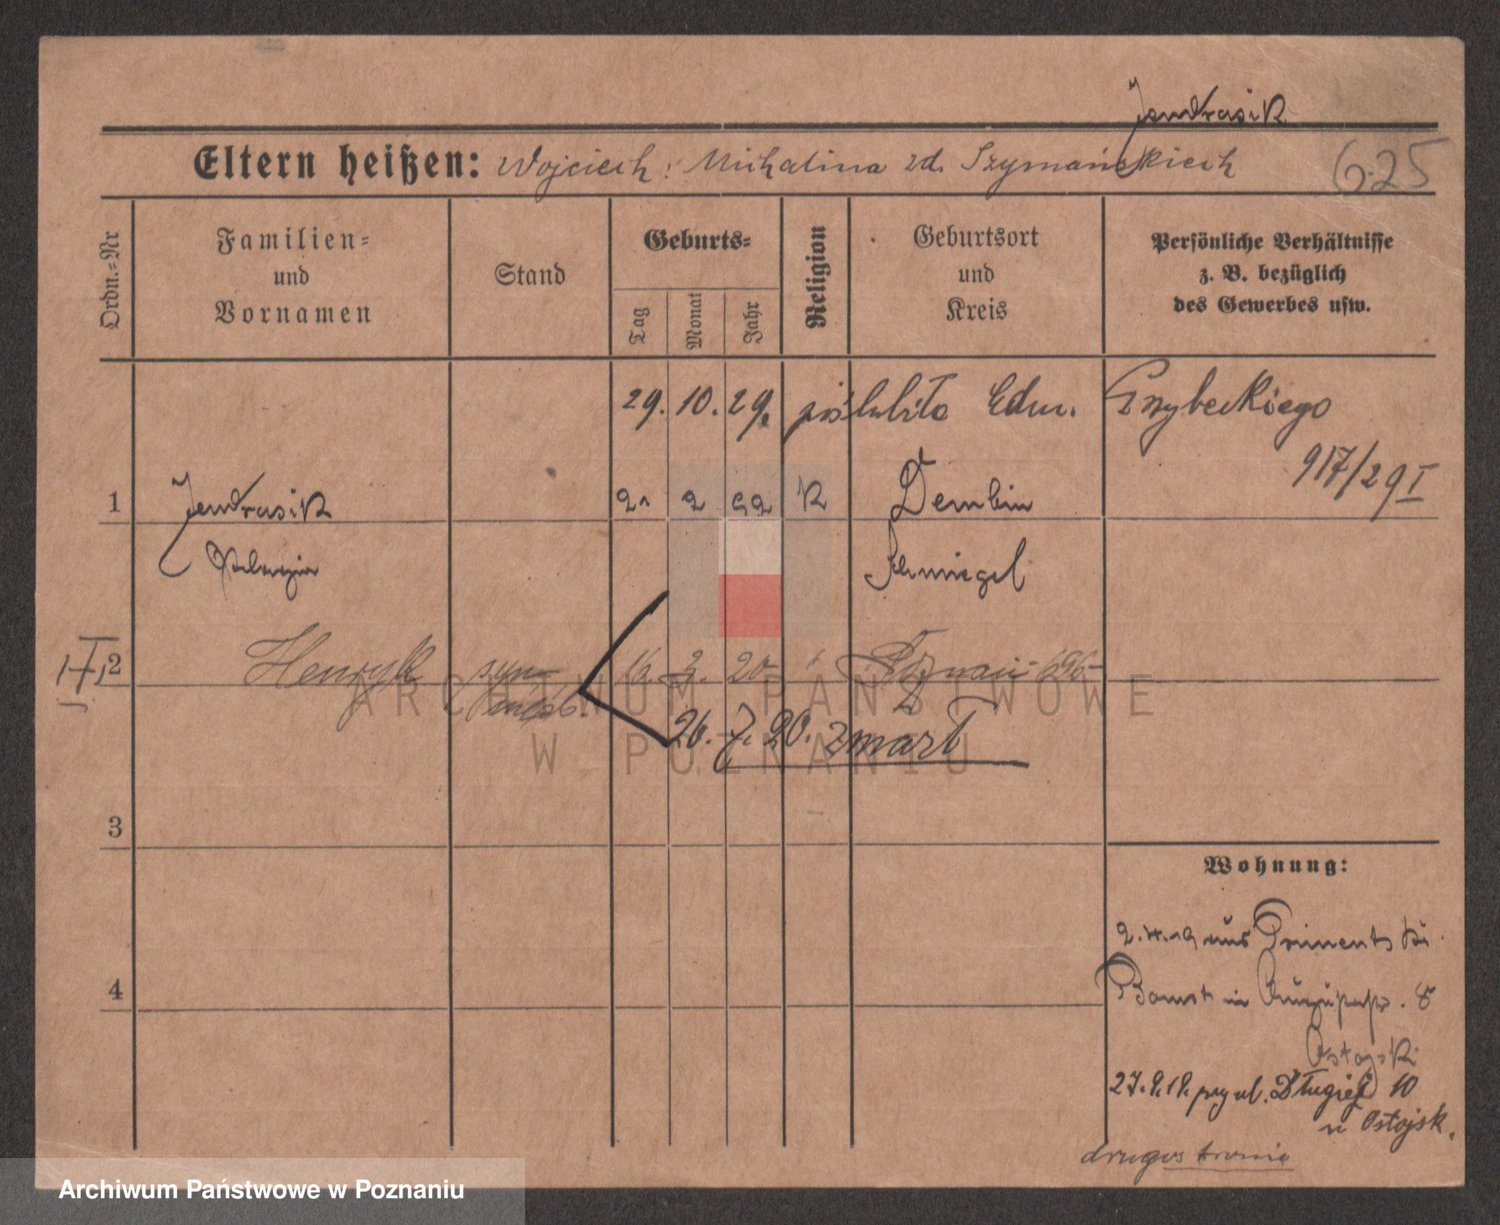 Jendrasik
Eltern heißen: Wojciech i Michalina zd. Szymańskich
625
Ordn.=Nr
Familien=
und
Vornamen
Stand
Geburts=
Tag
Monat
Jahr
Religion
Geburtsort
und
Kreis
Persönliche Verhältnisse
z. B. bezüglich
des Gewerbes usw.
29. 10. 29. poślubiła Edm. Grzybeckiego
917/29 I
1 Jendrasik 21 2 92 K Dembin
Pelagia Schmiegel
2 Henryk syn 16. 2. 20 Poznań 696
nieśl.
26. 7. 20. zmarł
3
4
Wohnung:
2.4.19 aus Priment Kr.
Bomst in 8
Ostojski
27.9.19. przy ul. Długiej 10
u Ostojsk.
druga strona
ARCHIWUM PAŃSTWOWE
W POZNANIU
Archiwum Państwowe w Poznaniu